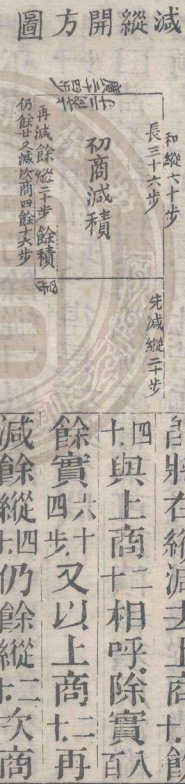 減縱開方圖
和縱六十步
長三十六步
先減縱二十步
初商減積
餘積
再減餘縱二十步
仍餘廿又減次商四餘十六步
將在縱減去上商十餘
四十與上商二十相呼除實八百
餘實六十四步又以上商二十再
減餘縱四十仍餘縱二十次商